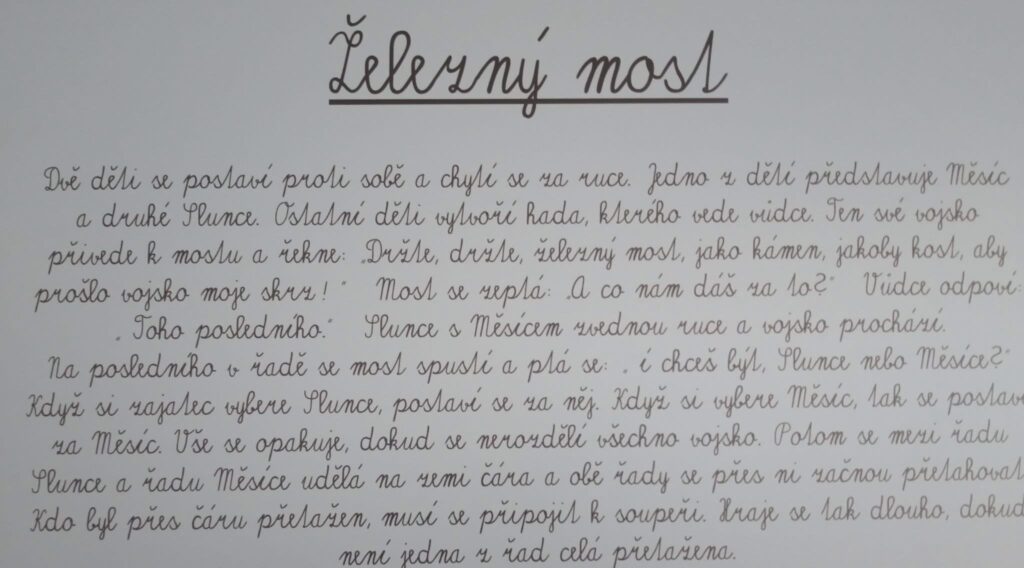 Železný most
Dvě děti se postaví proti sobě a chytí se za ruce. Jedno z dětí představuje Měsíc
a druhé Slunce. Ostatní děti vytvoří hada, kterého vede vůdce. Ten své vojsko
přivede k mostu a řekne: „Držte, držte, železný most, jako kámen, jakoby kost, aby
prošlo vojsko moje skrz! “ Most se zeptá: „A co nám dáš za to?“ Vůdce odpoví:
„ Toho posledního.“ Slunce s Měsícem zvednou ruce a vojsko prochází.
Na posledního v řadě se most spustí a ptá se: „ í chceš být, Slunce nebo Měsíce?“
Když si zajatec vybere Slunce, postaví se za něj. Když si vybere Měsíc, tak se postaví
za Měsíc. Vše se opakuje, dokud se nerozdělí všechno vojsko. Potom se mezi řadu
Slunce a řadu Měsíce udělá na zemi čára a obě řady se přes ni začnou přetahovat.
Kdo byl přes čáru přetažen, musí se připojit k soupeři. Hraje se tak dlouho, dokud
není jedna z řad celá přetažena.